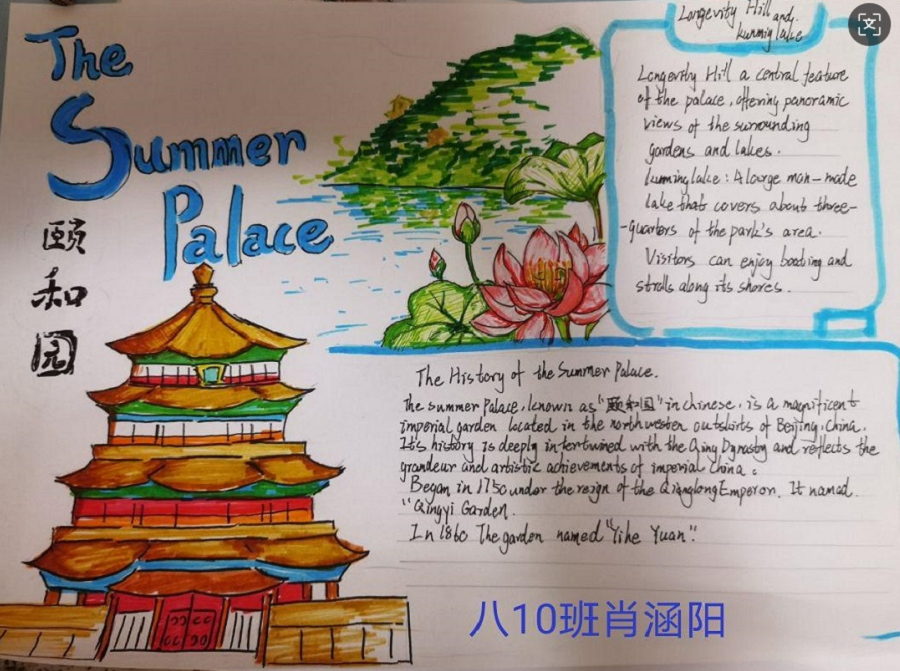 The
Summer
Palace
颐
和
园
Longevity Hill and
kunmig lake
Longevity Hill a central feature
of the palace, offering panoramic
views of the surrounding
gardens and lakes.
kunming lake: A large man-made
lake that covers about three-
-quarters of the park's area.
Visitors can enjoy boating and
strolls along its shores.
The History of the Summer Palace.
The summer Palace, known as "颐和园" in chinese, is a magnificent
imperial garden located in the northwestern outskirts of Beijing, China.
It's history is deeply intertwined with the Qing Dynasty and reflects the
grandeur and artistic achievements of imperial China。
Began in 1750 under the reign of the Qianglong Emperor. It named
"Qingyi Garden.
In 1860 The garden named "Yihe Yuan".
八10班肖涵阳